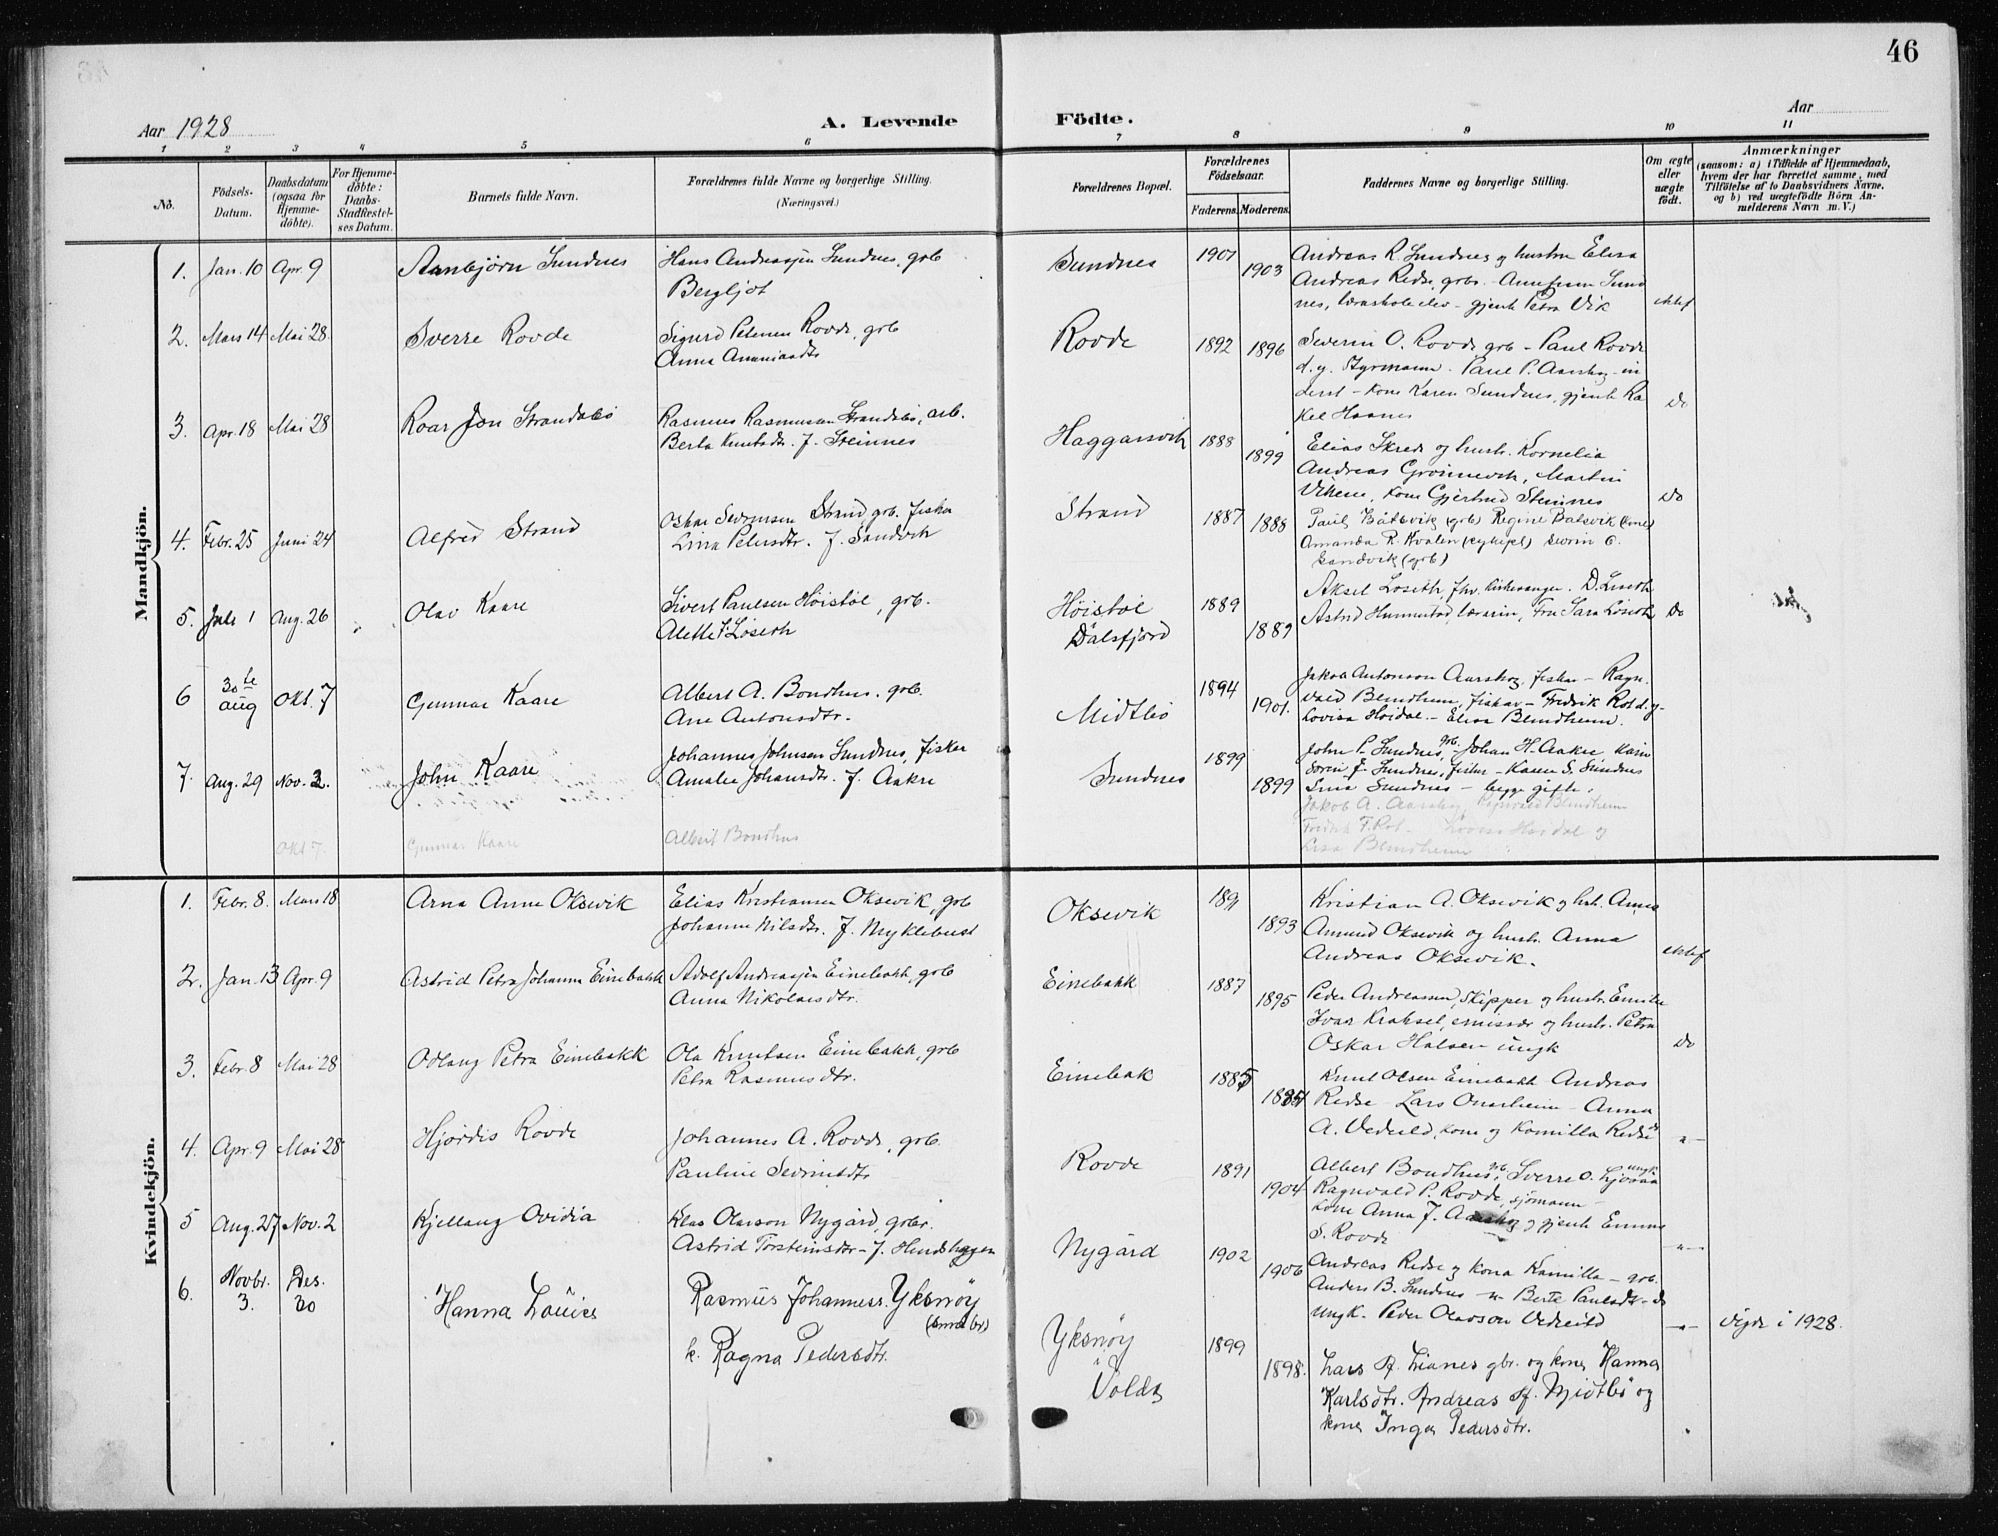 46
Aar 1928
A. Levende
Födte.
Aar
1 2 3 4 5 6 7 8 9 10 11
No.
Födsels-
Datum.
Daabsdatum
(ogsaa for
Hjemme-
döbte).
For Hjemme-
döbte:
Daabs-
Stadfæstel-
ses Datum.
Barnets fulde Navn.
Forældrenes fulde Navne og borgerlige Stilling.
(Næringsvei.)
Forældrenes Bopæl.
Forældrenes
Födselsaar.
Faderens. Moderens.
Faddernes Navne og borgerlige Stilling.
Om ægte
eller
uægte
födt.
Anmærkninger
(saasom: a) i Tilfælde af Hjemmedaab,
hvem der har forrettet samme, med
Tilföielse af to Daabsvidners Navne,
og b) ved uægtefödte Börn An-
melderens Navn m. V.)
Mandkjön.
1. Jan. 10 Apr. 9 Arnbjørn Sundnes
Hans Andreassen Sundnes, grb
Bergljot
Sundnes 1901 1903
Andreas R. Sundnes og hustru Elisa
Andreas Redse, grbr. Sund
nes, lærarskole elev - gjente Petra Vik
ektef
2. Mars 14 Mai 28 Sverre Rovde
Sigurd Petersen Rovde, grb
Anna Ananiasdtr
Rovde 1892 1896
Severin O. Rovde grb - Paul Rovde
d.y. Styrmann. Paul P. Aarskog - in
derst - Kone Karen Sundnes, gjente Ra
kel Haanes
Do
3. Apr. 18 Mai 28 Roar Jon Strandabø
Rasmus Rasmussen Strandabø, arb.
Berta Knutsdtr. f. Steinnes
Haggarsvik 1888 1899
Elias Skrede og hustr. Kornelia
Andreas Martin
Vikene, Kone Gjertrud Steinnes
Do
4. Febr. 25 Juni 24 Alfred Strand
Oskar Severinsen Strand grb. fisker
Lina Petersdtr. f. Sandvik
Strand 1887 1888
Paul Båtsvik (grb) Regine Båtsvik (kone)
Amanda R. Kvalen (sykepl.) Severin O.
Sandvik (grb)
5. Juli 1 Aug. 26 Olav Kaare
Sivert Paulsen Höistöl, grb.
Alette Löseth
Höistöl
Dalsfjord
1889 1889
Aksel Löseth, fhv. Kirkesanger. D. Löseth
Astrid Hunnestad, lærarin, Fru Sara Löseth
Do
6 30te
aug Okt. 7 Gunnar Kaare
Albert A. Bondhus. grb.
Ane Antonsdtr.
Midtbö 1894 1901.
Jakob Antonson Aarskog, fisker - Ragn.
vald Blindheim, fiskar - Fredrik Rot d.y.
Lovisa Höidal - Elisa Blindheim.
7. Aug. 29 Nov. 2. John Kaare
Johannes Johnsen Sundnes, fisker
Amalie Johansdtr. f. Aakre
Sundnes 1899 1899
John P. Sundnes, grb. Johan H. Aakre
Sundnes, fisker - Karen S. Sundnes
Lina Sundnes - begge gifte.
Okt 7. Gunnar Kaare Albert Bondhus
Jakob A. Aarskog, Ragnvald Blindheim
Fredrik F. Rot - Lovisa Höidal og
Lisa Blindheim
Kvindekjön.
1. Febr. 8. Mars 18 Arna Anne Oksevik
Elias Kristiansen Oksevik, grb
Johanne Nilsdtr. f. Myklebust
Oksevik 1891 1893
Kristian A. Oksevik og hustr. Anna
Amund Oksevik og hustr. Anna
Andreas Oksevik.
ektef
2. Jan. 13 Apr. 9 Astrid Petra Johanna Einebakk
Adolf Andreassen Einebakk, grb
Anna Nikolaisdtr.
Einebakk 1887 1895
Peder Andreassen, skipper og hustr. Emilie
Ivar Kraksel, emissær og hustr. Petra
Oskar Halsen ungk
Do
3. Febr. 8 Mai 28 Odlaug Petra Einebakk
Ola Knutsen Einebakk, grb
Petra Rasmusdtr.
Einebak 1885
Knut Olsen Einebakk Andreas
Redse - Lars - Anna
A. Vedeld, kone og Kamilla Redse
-"-
4. Apr. 9 Mai 28 Hjördis Rovde
Johannes A. Rovde, grb.
Pauline Severinsdtr
Rovde 1891 1904
Albert Bondhus, grb, Sverre O. Ljösaa ungk.
Ragnvald P. Rovde, sjömann -
Kone Anna J. Aarskog og gjente Emma
S. Rovde
-"-
5 Aug. 27 Nov. 2 Kjellaug Ovidia
Klas Olavson Nygård, grbr.
Astrid Torsteinsdtr - f.
Nygård 1902 1906
Andreas Redse og kona Kamilla - grb.
Anders B. Sundnes -"- Berte Paulsdtr - do
Ungk. Peder Olavson Vedeild
-"- Vigde i 1928.
6. Novbr.
3. Des.
30 Hanna Lovise
Rasmus Johanness. Yksnøy
k. Ragna Pedersdtr.
Yksnøy
i Volda
1899 1898.
Lars P. Lianes gbr. og kone Hanna
Karlsdtr. Andreas P. Midtbö og
kone Inga Pedersdtr.